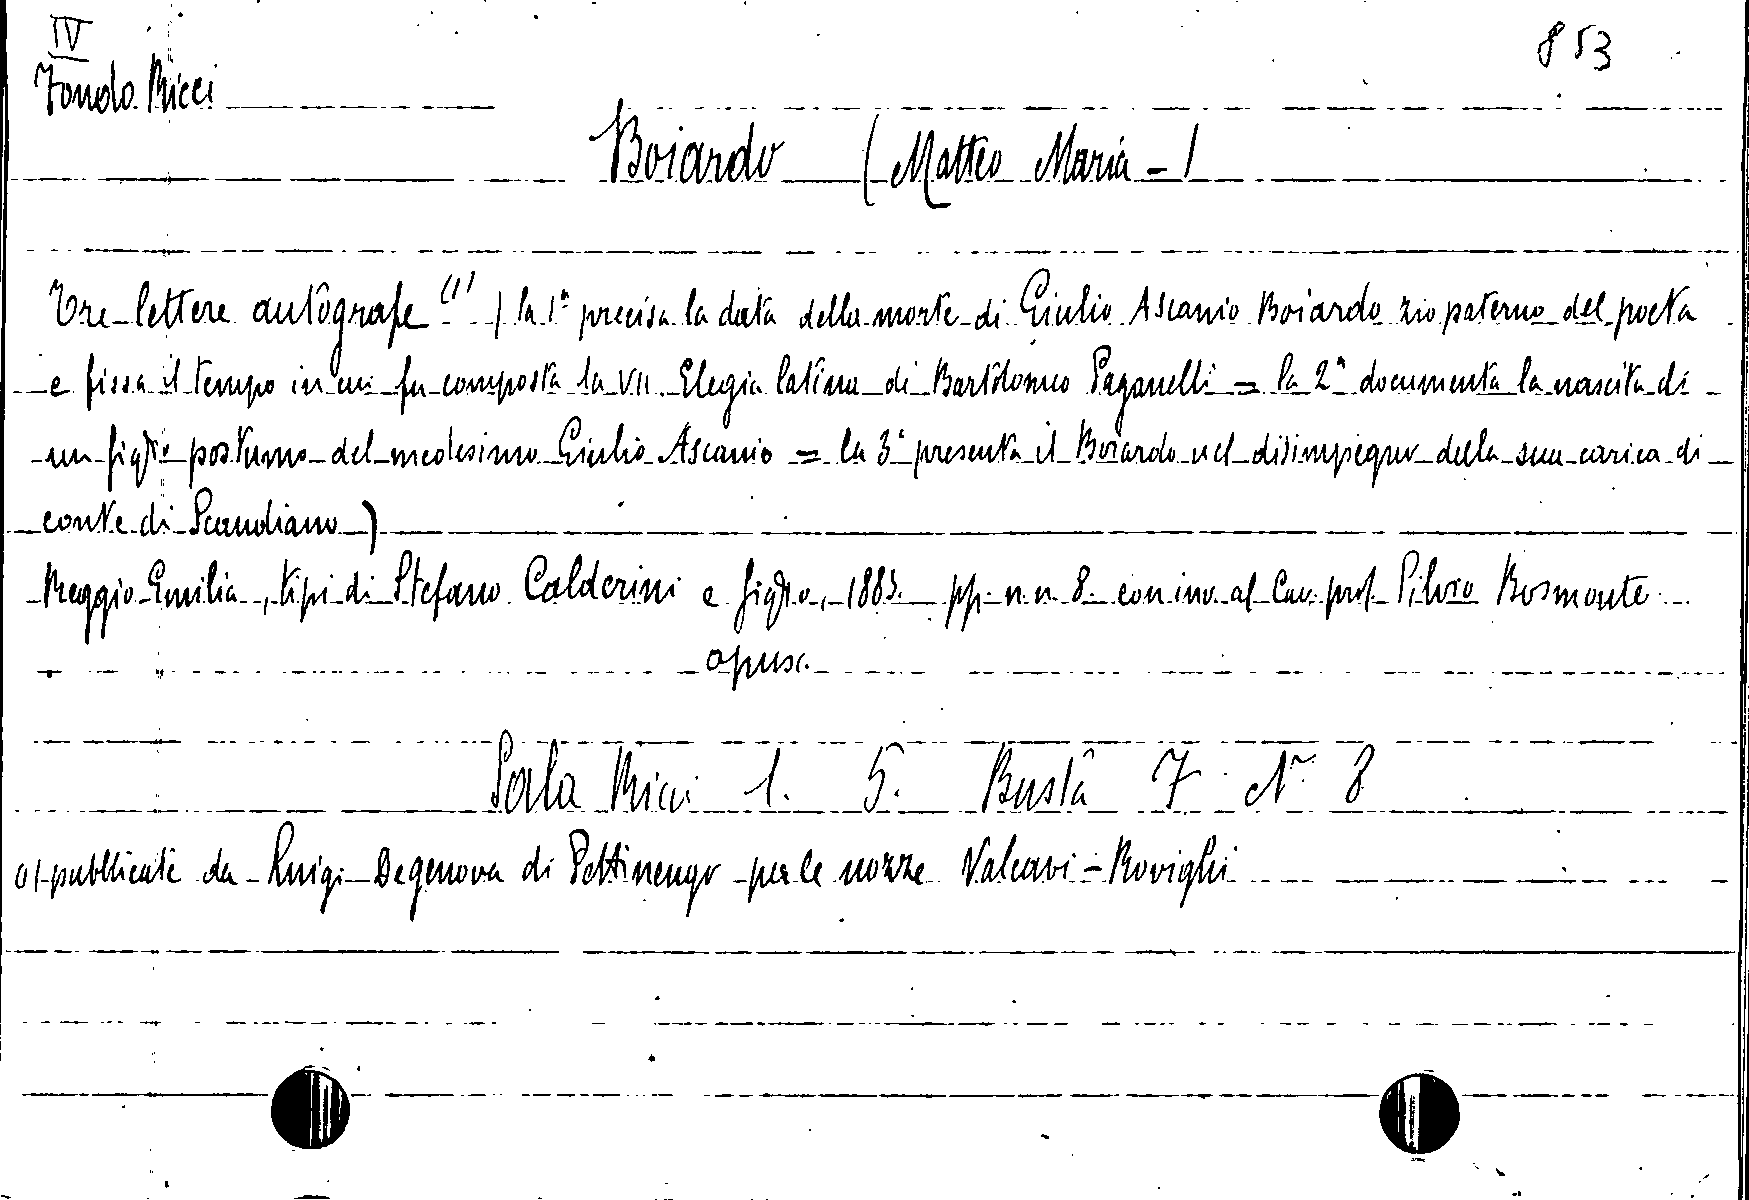 IV
853
Fondo Ricci
Boiardo (Matteo Maria - )
Tre lettere autografe (1) ( la 1ª precisa la data della morte di Giulio Ascanio Boiardo zio paterno del poeta
e fissa il tempo in cui fu composta la VII Elegia latina di Bartolomeo Paganelli = la 2ª documenta la nascita di
un figlio postumo del medesimo Giulio Ascanio = la 3ª presenta il Boiardo nel disimpegno della sua carica di
conte di Scandiano )
Reggio Emilia, tipi di Stefano Calderini e figlio, pp. n n 8. con inv. al Cav. prof. Silvio
opusc.
Sala Ricci 1. 5. Busta 7 Nº 8
(1) pubblicate da Luigi Degenova di Pettinengo per le nozze Valcavi - Rovighi